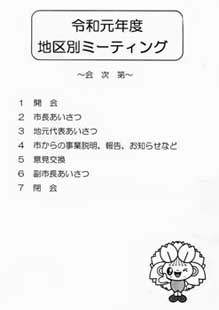 令和元年度
地区別ミーティング
～会 次 第～
1 開 会
2 市長あいさつ
3 地元代表あいさつ
4 市からの事業説明、報告、お知らせなど
5 意見交換
6 副市長あいさつ
7 閉 会